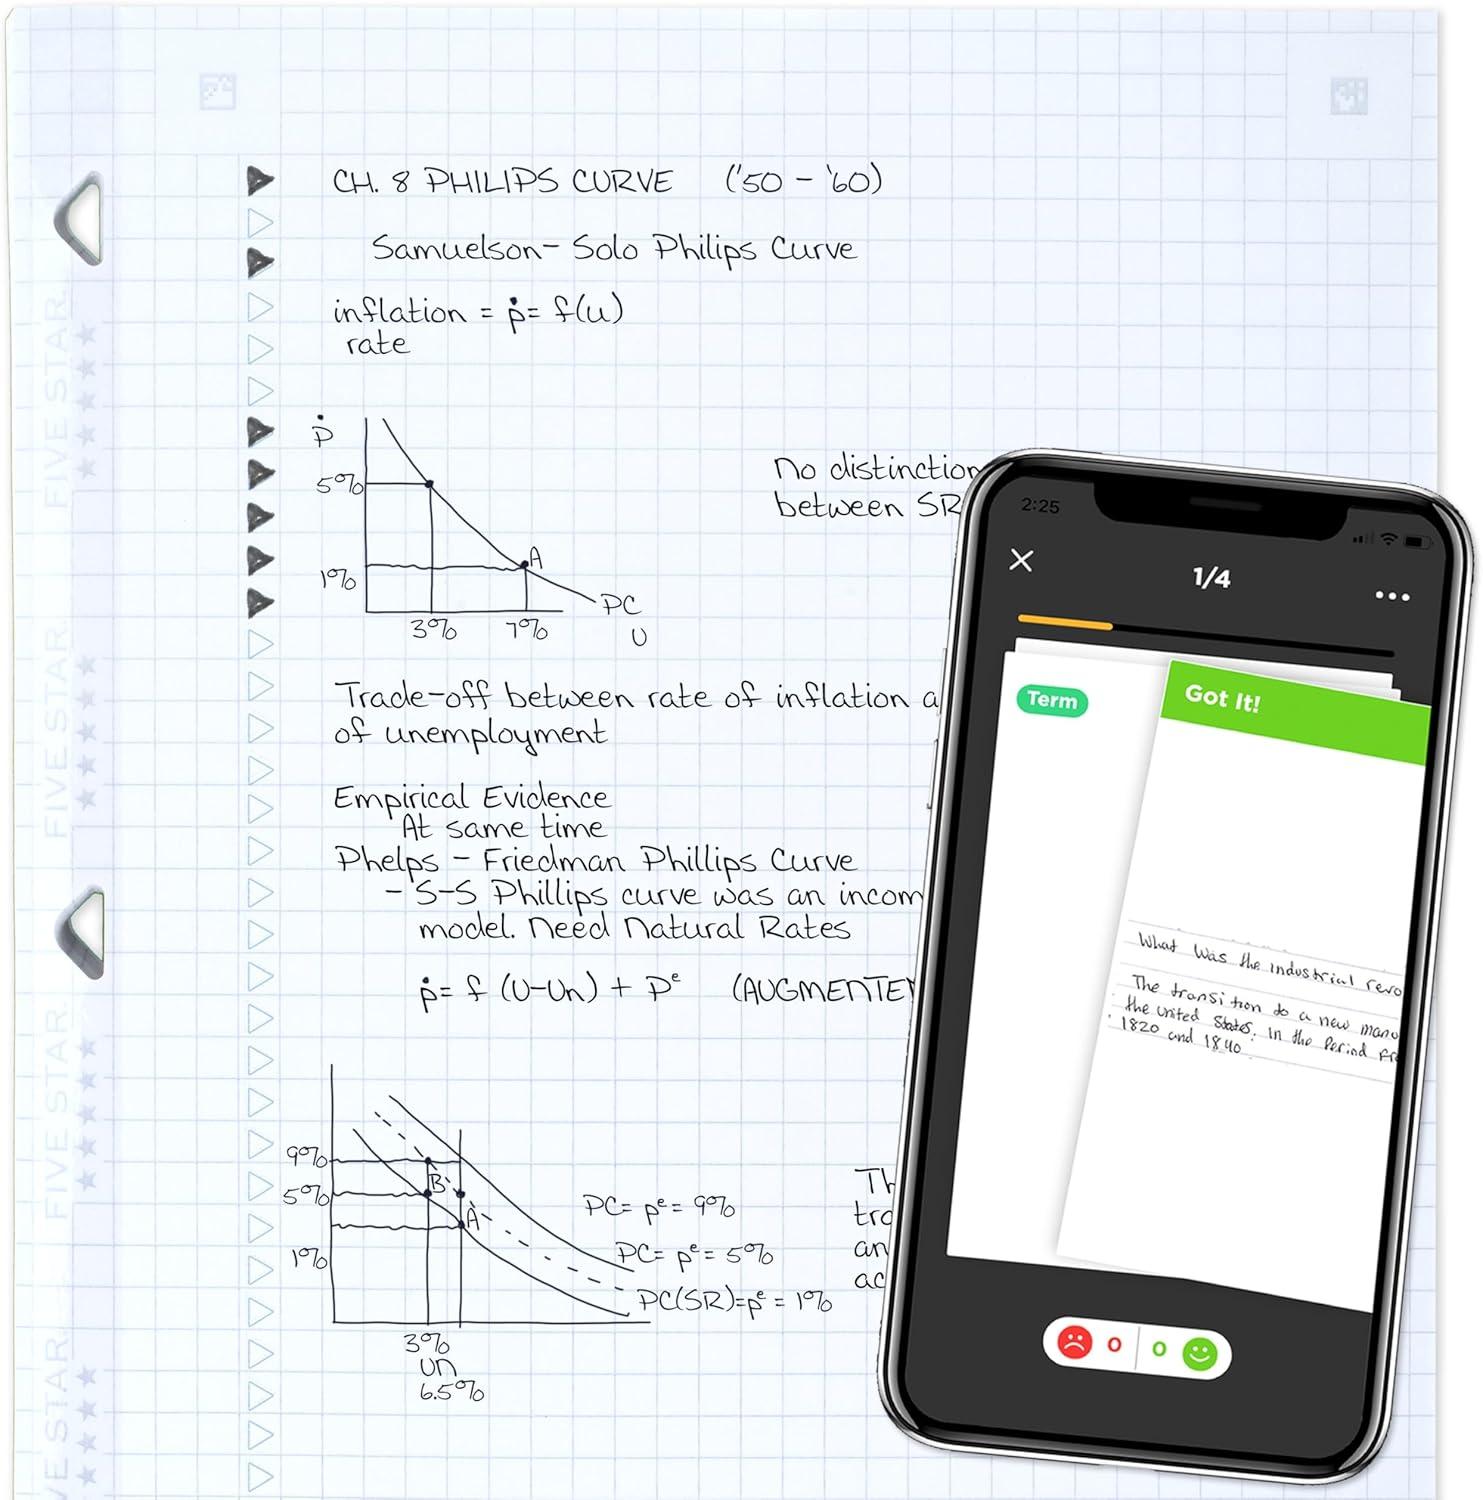 CH. 8 PHILIPS CURVE ('50 - '60)
Samuelson- Solo Philips Curve
inflation = ṗ= f(u)
rate
ṗ
5%
A
1%
PC
3% 7% U
No distinction
between SR
Trade-off between rate of inflation a
of unemployment
Empirical Evidence
At same time
Phelps - Friedman Phillips Curve
- S-S Phillips curve was an incom
model. Need Natural Rates
ṗ= f (U-Un) + Pᵉ (AUGMENTE
9%
5%
1%
B
A
PC= pᵉ= 9%
PC= pᵉ= 5%
PC(SR)=pᵉ = 1%
3%
un
6.5%
Th
tra
an
ac
FIVE STAR.
FIVE STAR.
FIVE STAR.
FIVE STAR.
2:25
1/4
Term
Got It!
What was the industrial revo
The transition to a new manu
the United States, in the Period fr
1820 and 1840
0 0